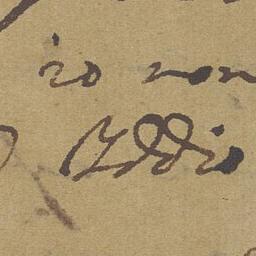 io non
Addio